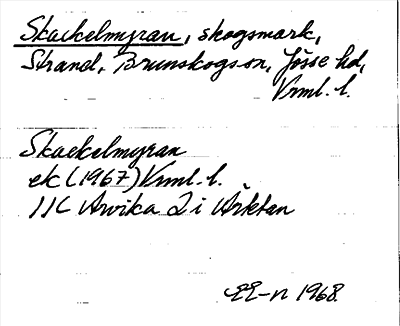 Skackelmyran, skogsmark,
Strand, Brunskogs sn, Jösse hd,
Vrml. l.
Skackelmyran
ek (1967) Vrml. l.
11C Arvika 2 i Årktan
EE-n 1968.